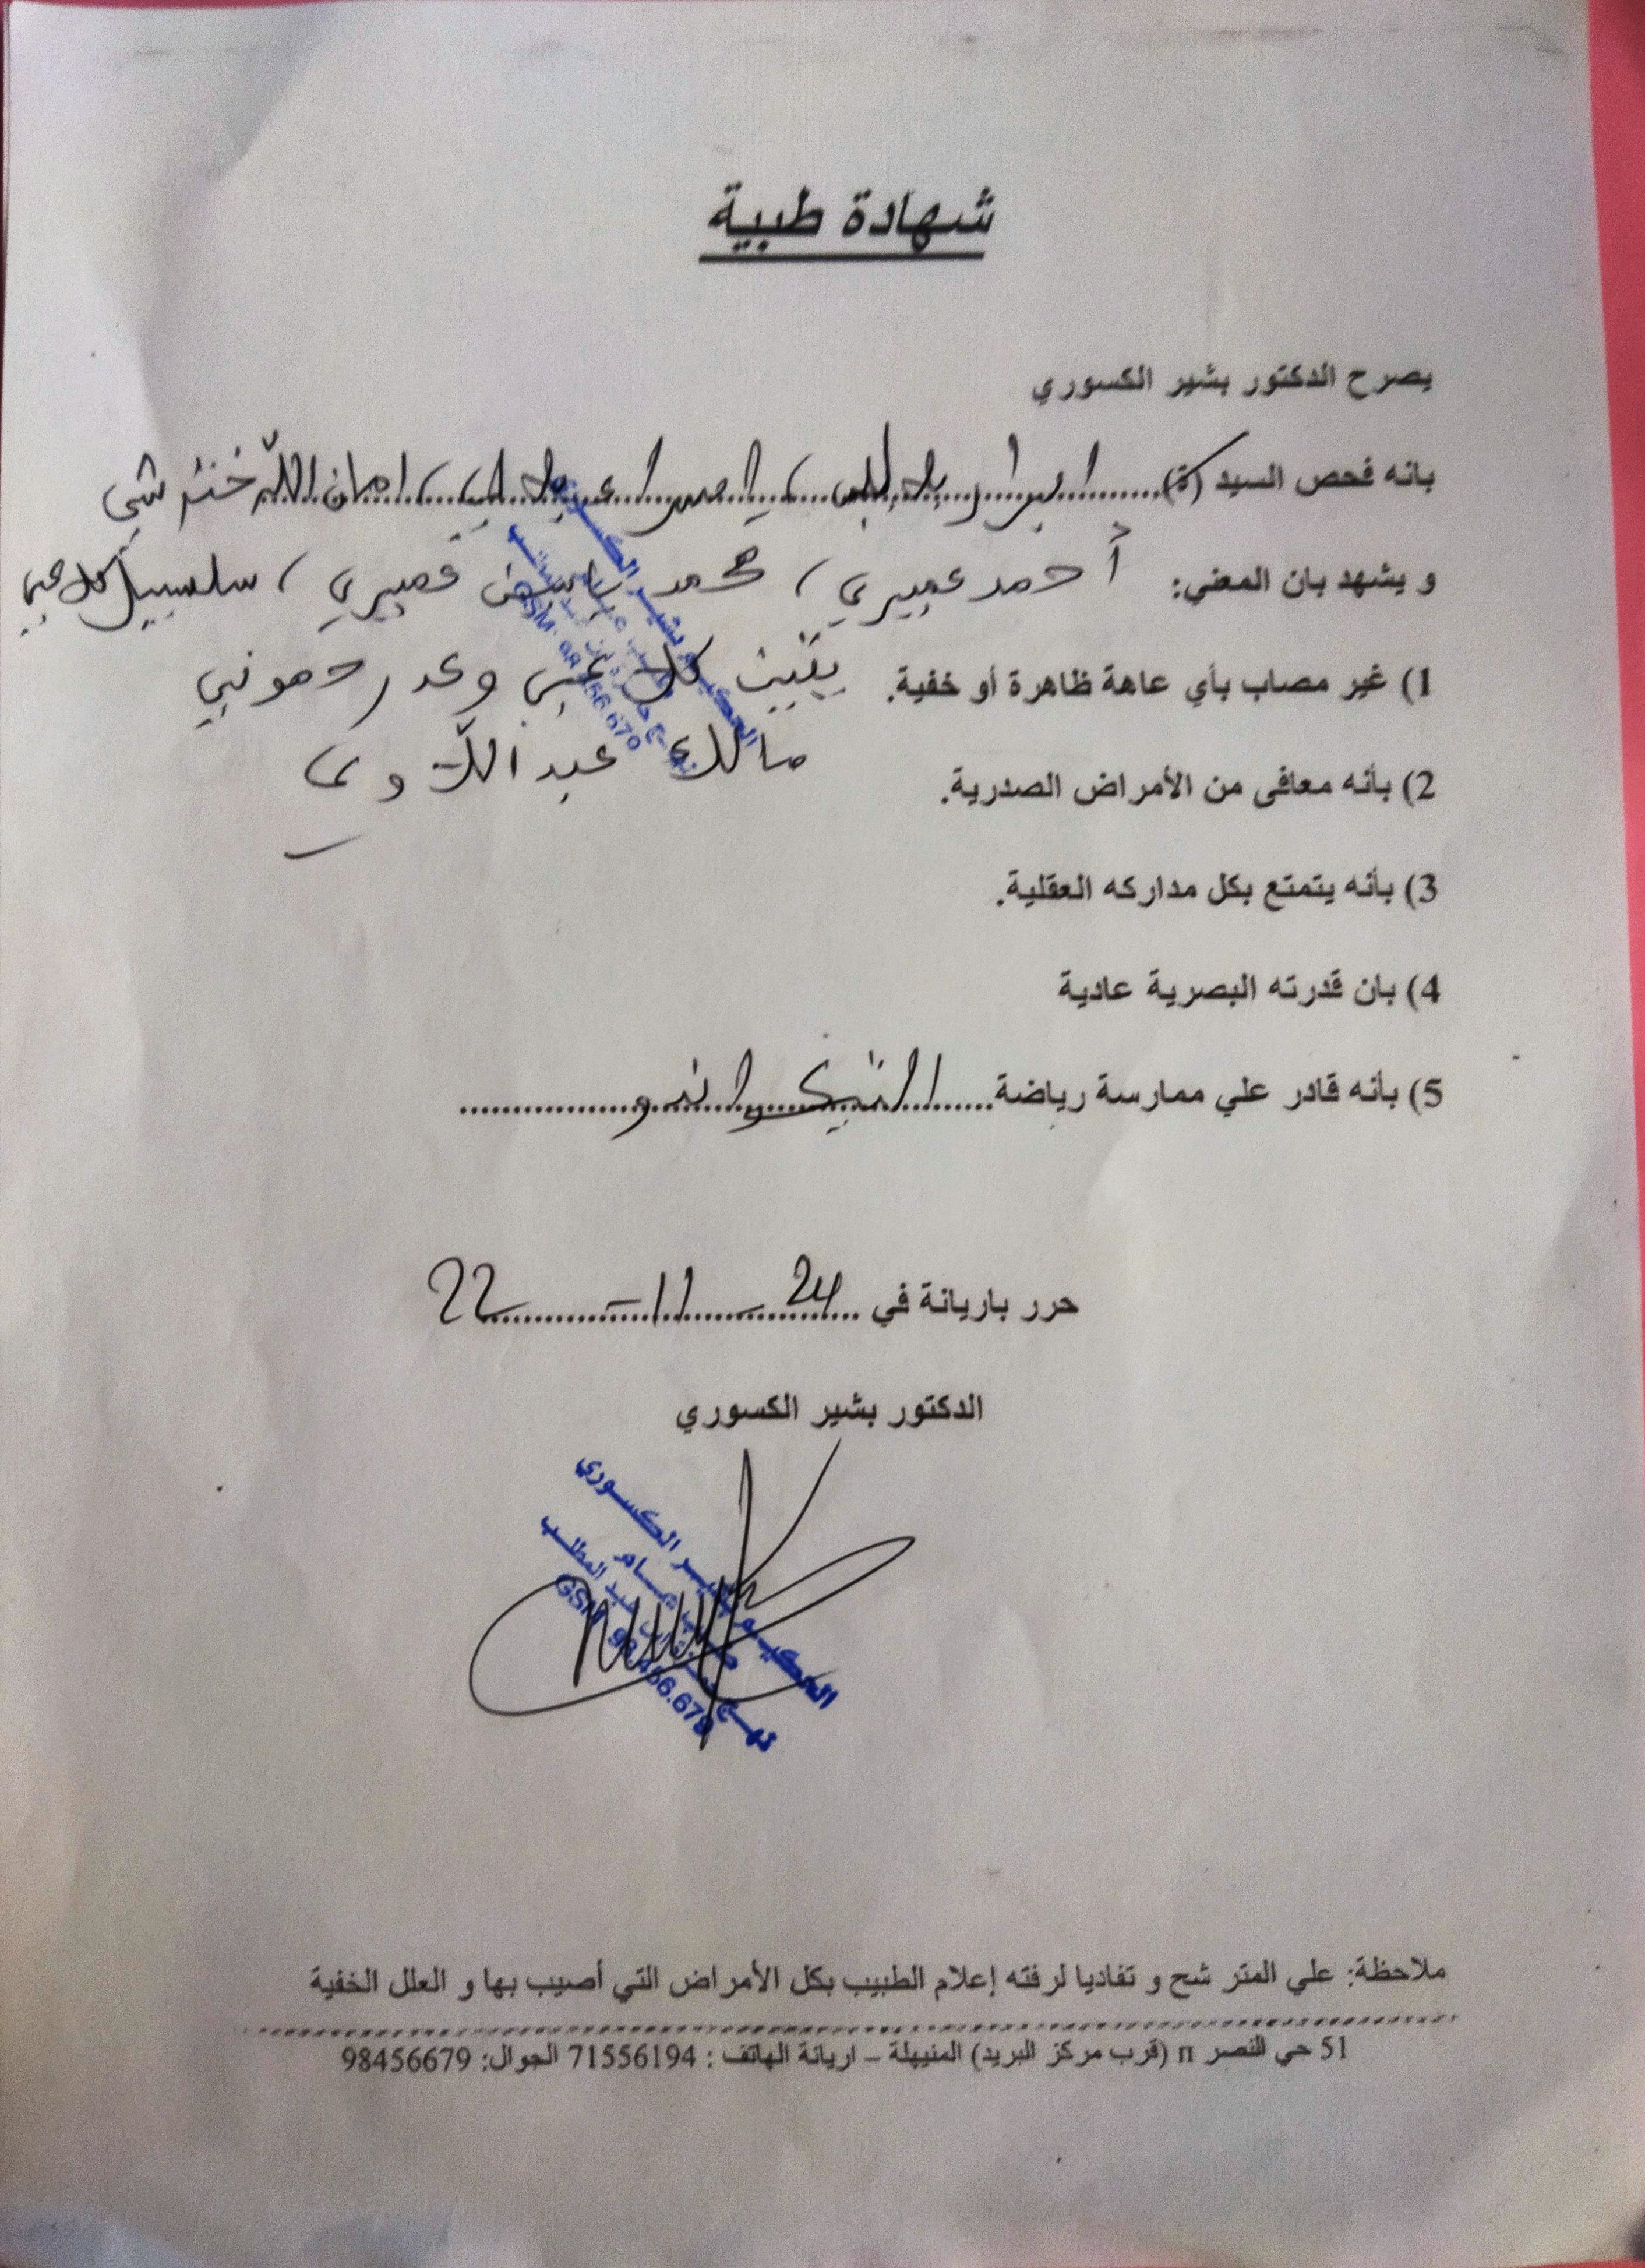 شهادة طبية
يصرح الدكتور بشير الكسوري
بانه فحص السيد (ة) ابرار امان الله ختر شي
و يشهد بان المعني: أحمد عميري، محمد قميري، سلسبيل
1) غير مصاب بأي عاهة ظاهرة أو خفية. وعد رحموني
2) بأنه معافى من الأمراض الصدرية. مالك عبد اللاوي
3) بأنه يتمتع بكل مداركه العقلية.
4) بان قدرته البصرية عادية
5) بأنه قادر علي ممارسة رياضة التيكواندو
حرر باريانة في 24 - 11 - 22
الدكتور بشير الكسوري
الحكيم بشير الكسوري
GSM: 98.456.679
ملاحظة: علي المتر شح و تفاديا لرفته إعلام الطبيب بكل الأمراض التي أصيب بها و العلل الخفية
51 حي النصر n (قرب مركز البريد) المنيهلة – اريانة الهاتف : 71556194 الجوال: 98456679